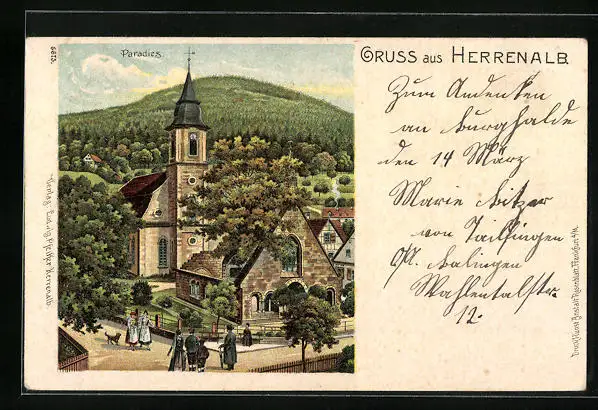 5673.
Paradies.
GRUSS aus HERRENALB.
Zum Andenken
an Burghalde
den 14 März
Marie Bitzer
von Tailfingen
Off. Balingen
Wahlentalstr.
12.
Verlag: Ludwig Pfeiffer Herrenalb.
Druck: Kunst Anstalt Rosenblatt, Frankfurt a/M.